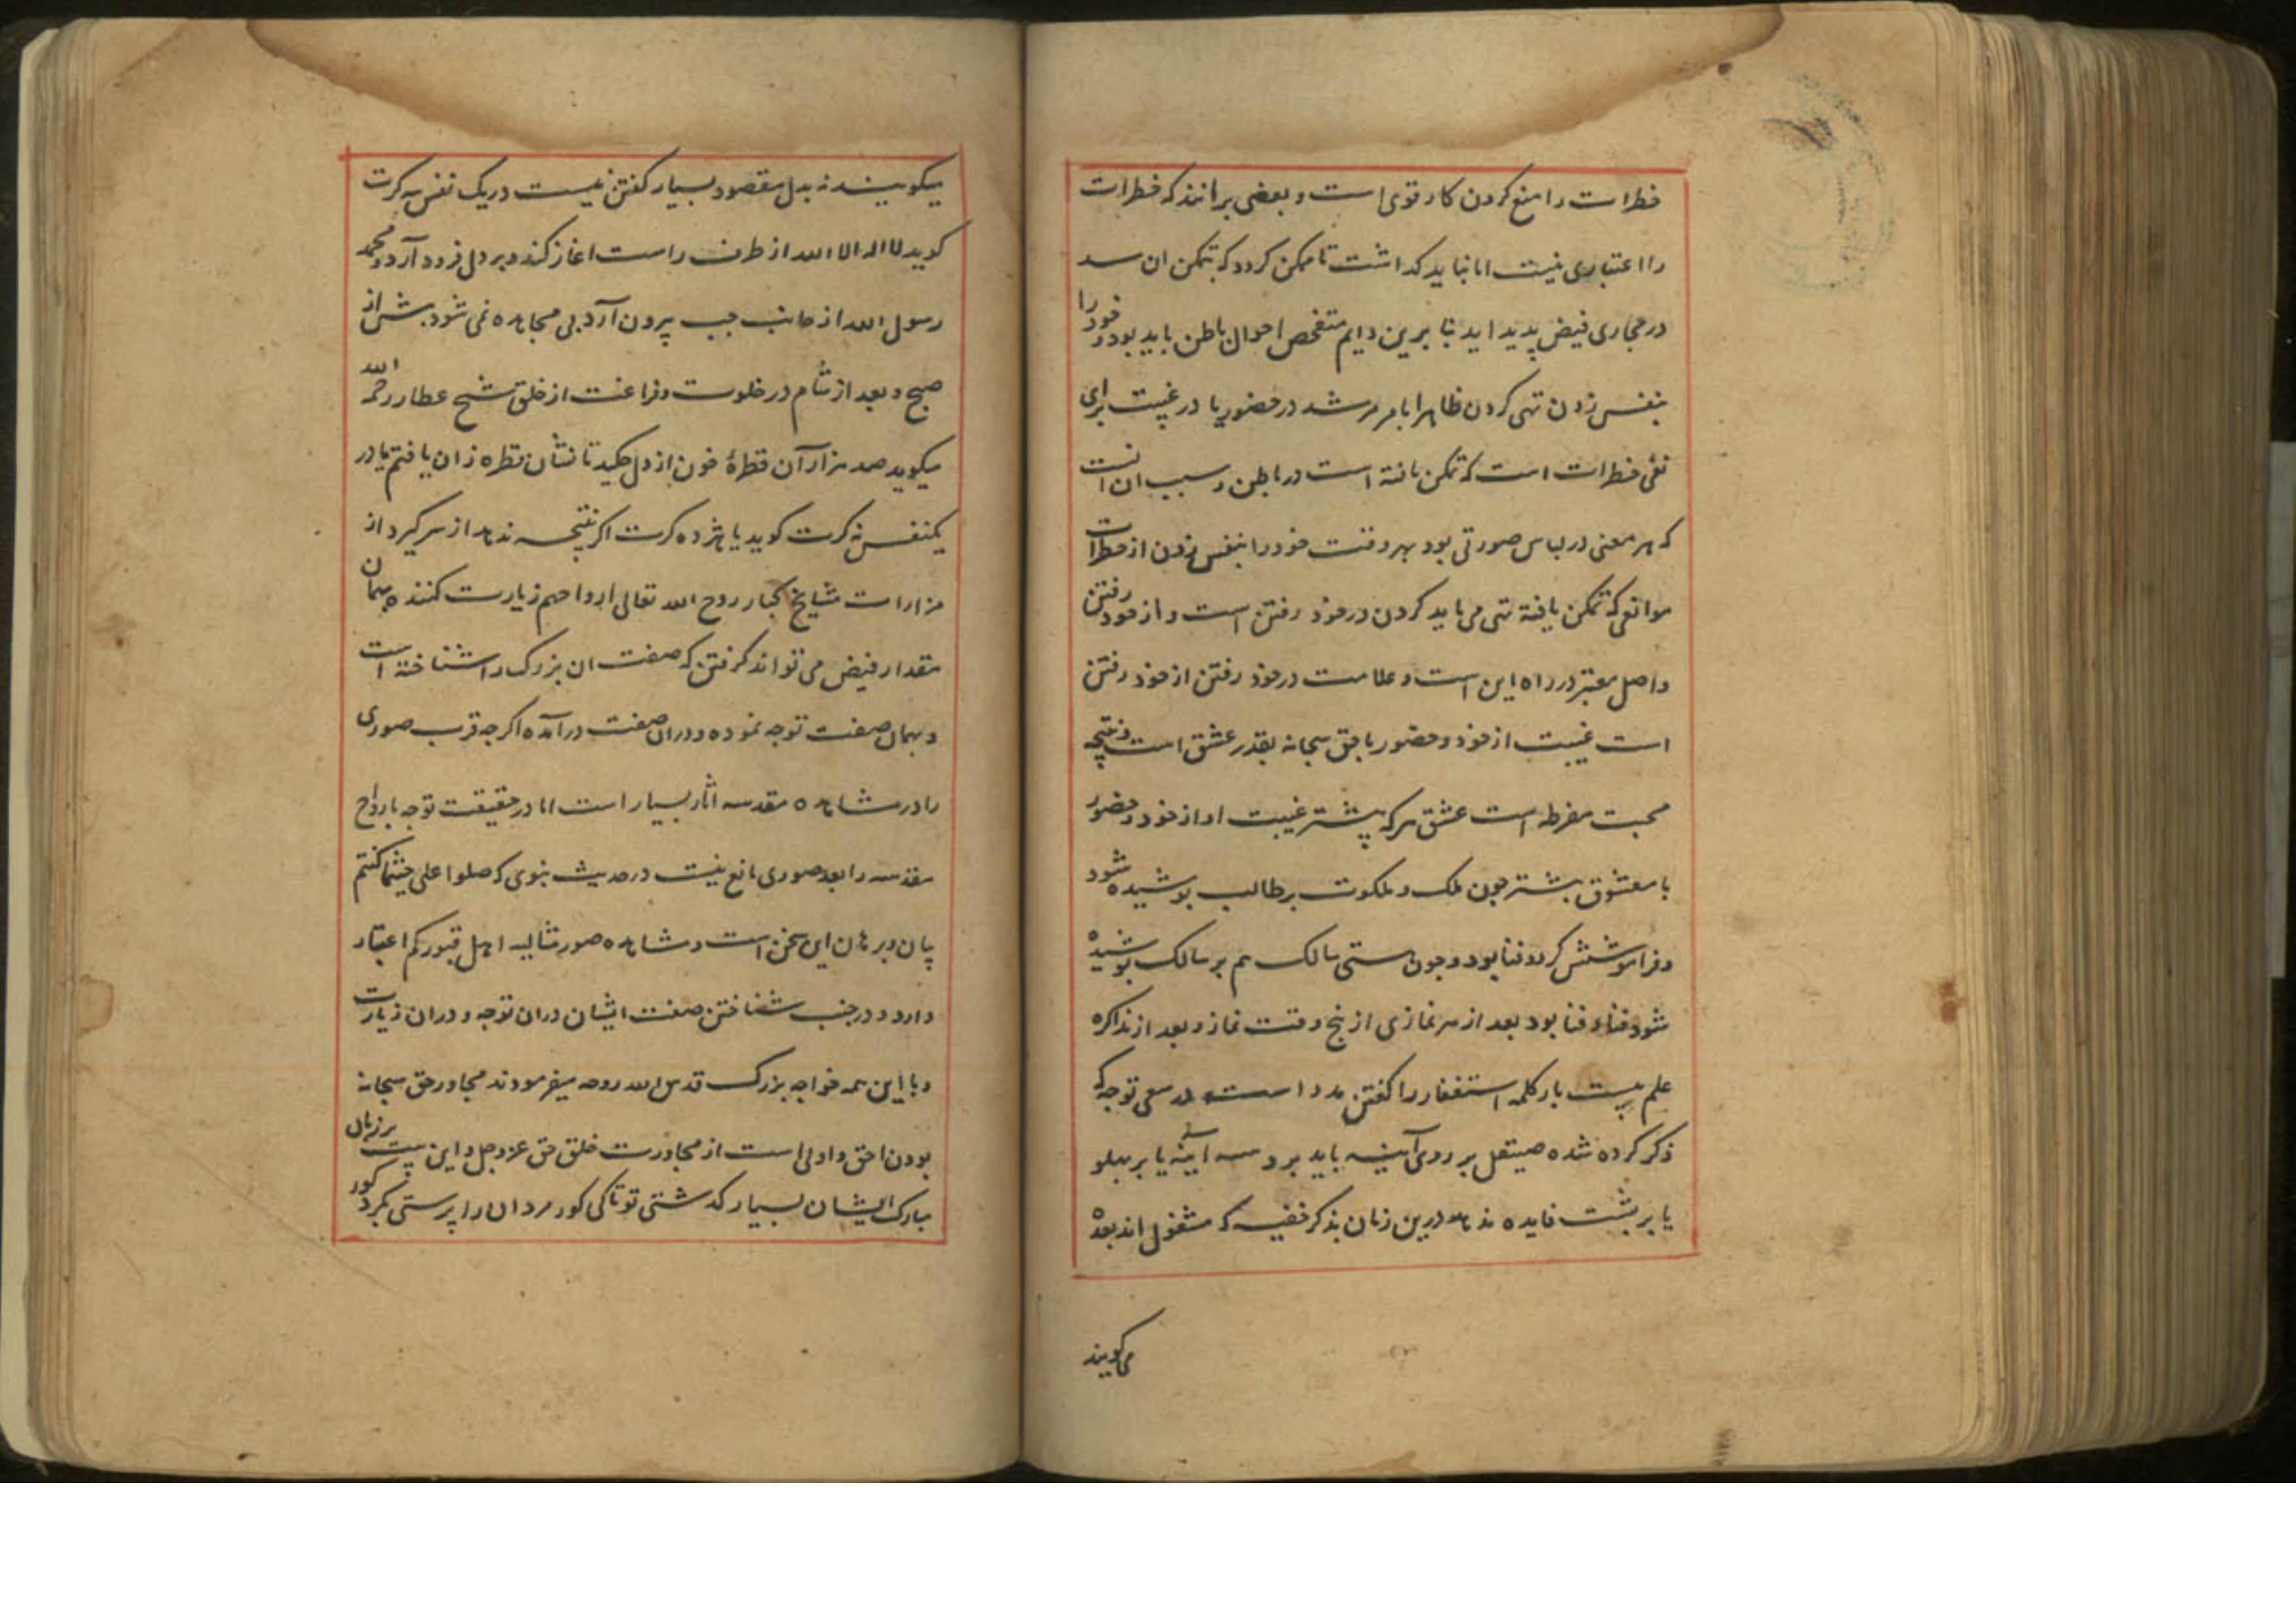 خطرات را منع کردن کار قوی است و بعضی برانند که خطرات
را اعتباری نیست اما نباید کذاشت تا ممکن کردد که بتمکن ان سد
در مجاری فیض پدید اید بنابرین دایم متفحص احوال باطن باید بود و خود را
بنفس زدن تهی کردن ظاهرا بامر مرشد در حضور یا در غیبت برای
نفی خطرات است که تمکن یافته است در باطن و سبب ان انست
که هر معنی در لباس صورتی بود بهر وقت خود را بنفس زدن از خطرات
موانعی که تمکن یافته تهی می باید کردن در خود رفتن است و از خود رفتن
و اصل معتبر در راه این است و علامت در خود رفتن از خود رفتن
است غیبت از خود و حضور با حق سبحانه بقدر عشق است و نتیجه
محبت مفرطه است عشق هر که پیشتر غیبت او از خود و حضور
با معشوق بیشتر چون ملک و ملکوت بر طالب پوشیده شود
و فراموشش کردد فنا بود و چون هستی سالک هم بر سالک پوشیده
شود فناء فنا بود بعد از هر نمازی از پنج وقت نماز و بعد از مذاکره
علم بیست بار کلمه استغفار را کفتن مدد است در سعی توجه که
ذکر کرده شده صیقل بر روی آینه باید برد سه آینه یا بر پهلو
یا بر پشت فایده ندهد درین زمان بذکر خفیه که مشغول اند بعده
می کویند
میکویند نه بدل مقصود بسیار کفتن نیست در یک نفس سه کرت
کوید لا اله الا الله از طرف راست اغاز کند و بر دل فرود آرد و محمد
رسول الله از جانب چپ بیرون آرد بی مجاهده نمی شود بیش از
صبح و بعد از شام در خلوت و فراغت از خلق شیخ عطار رحمه الله
میکوید صد هزاران قطرهٔ خون از دل چکید تا نشان قطره زان یافتم یا در
یکنفس نه کرت کوید یا هژده کرت اکر نتیجه ندهد از سر کیرد از
مزارات مشایخ کبار روح الله تعالی ارواحهم زیارت کننده بهمان
مقدار فیض می تواند کرفتن که صفت ان بزرک را شناخته است
و بهمان صفت توجه نموده و دران صفت درآمده اکرچه قرب صوری
را در مشاهده مقدسه اثار بسیار است اما در حقیقت توجه بارواح
مقدسه را بعد صوری مانع نیست در حدیث نبوی که صلوا علی حیثما کنتم
بیان و برهان این سخن است و مشاهده صور مثالیه اهل قبور کم اعتبار
دارد و در جنب شناختن صفت ایشان دران توجه و دران زیارت
و با این همه خواجه بزرک قدس الله روحه میفرمودند مجاور حق سبحانه
بودن احق و اولی است از مجاورت خلق حق عز و جل و این بیت بر زبان
مبارک ایشان بسیار کذشتی تو تا کی کور مردان را پرستی بکرد کور